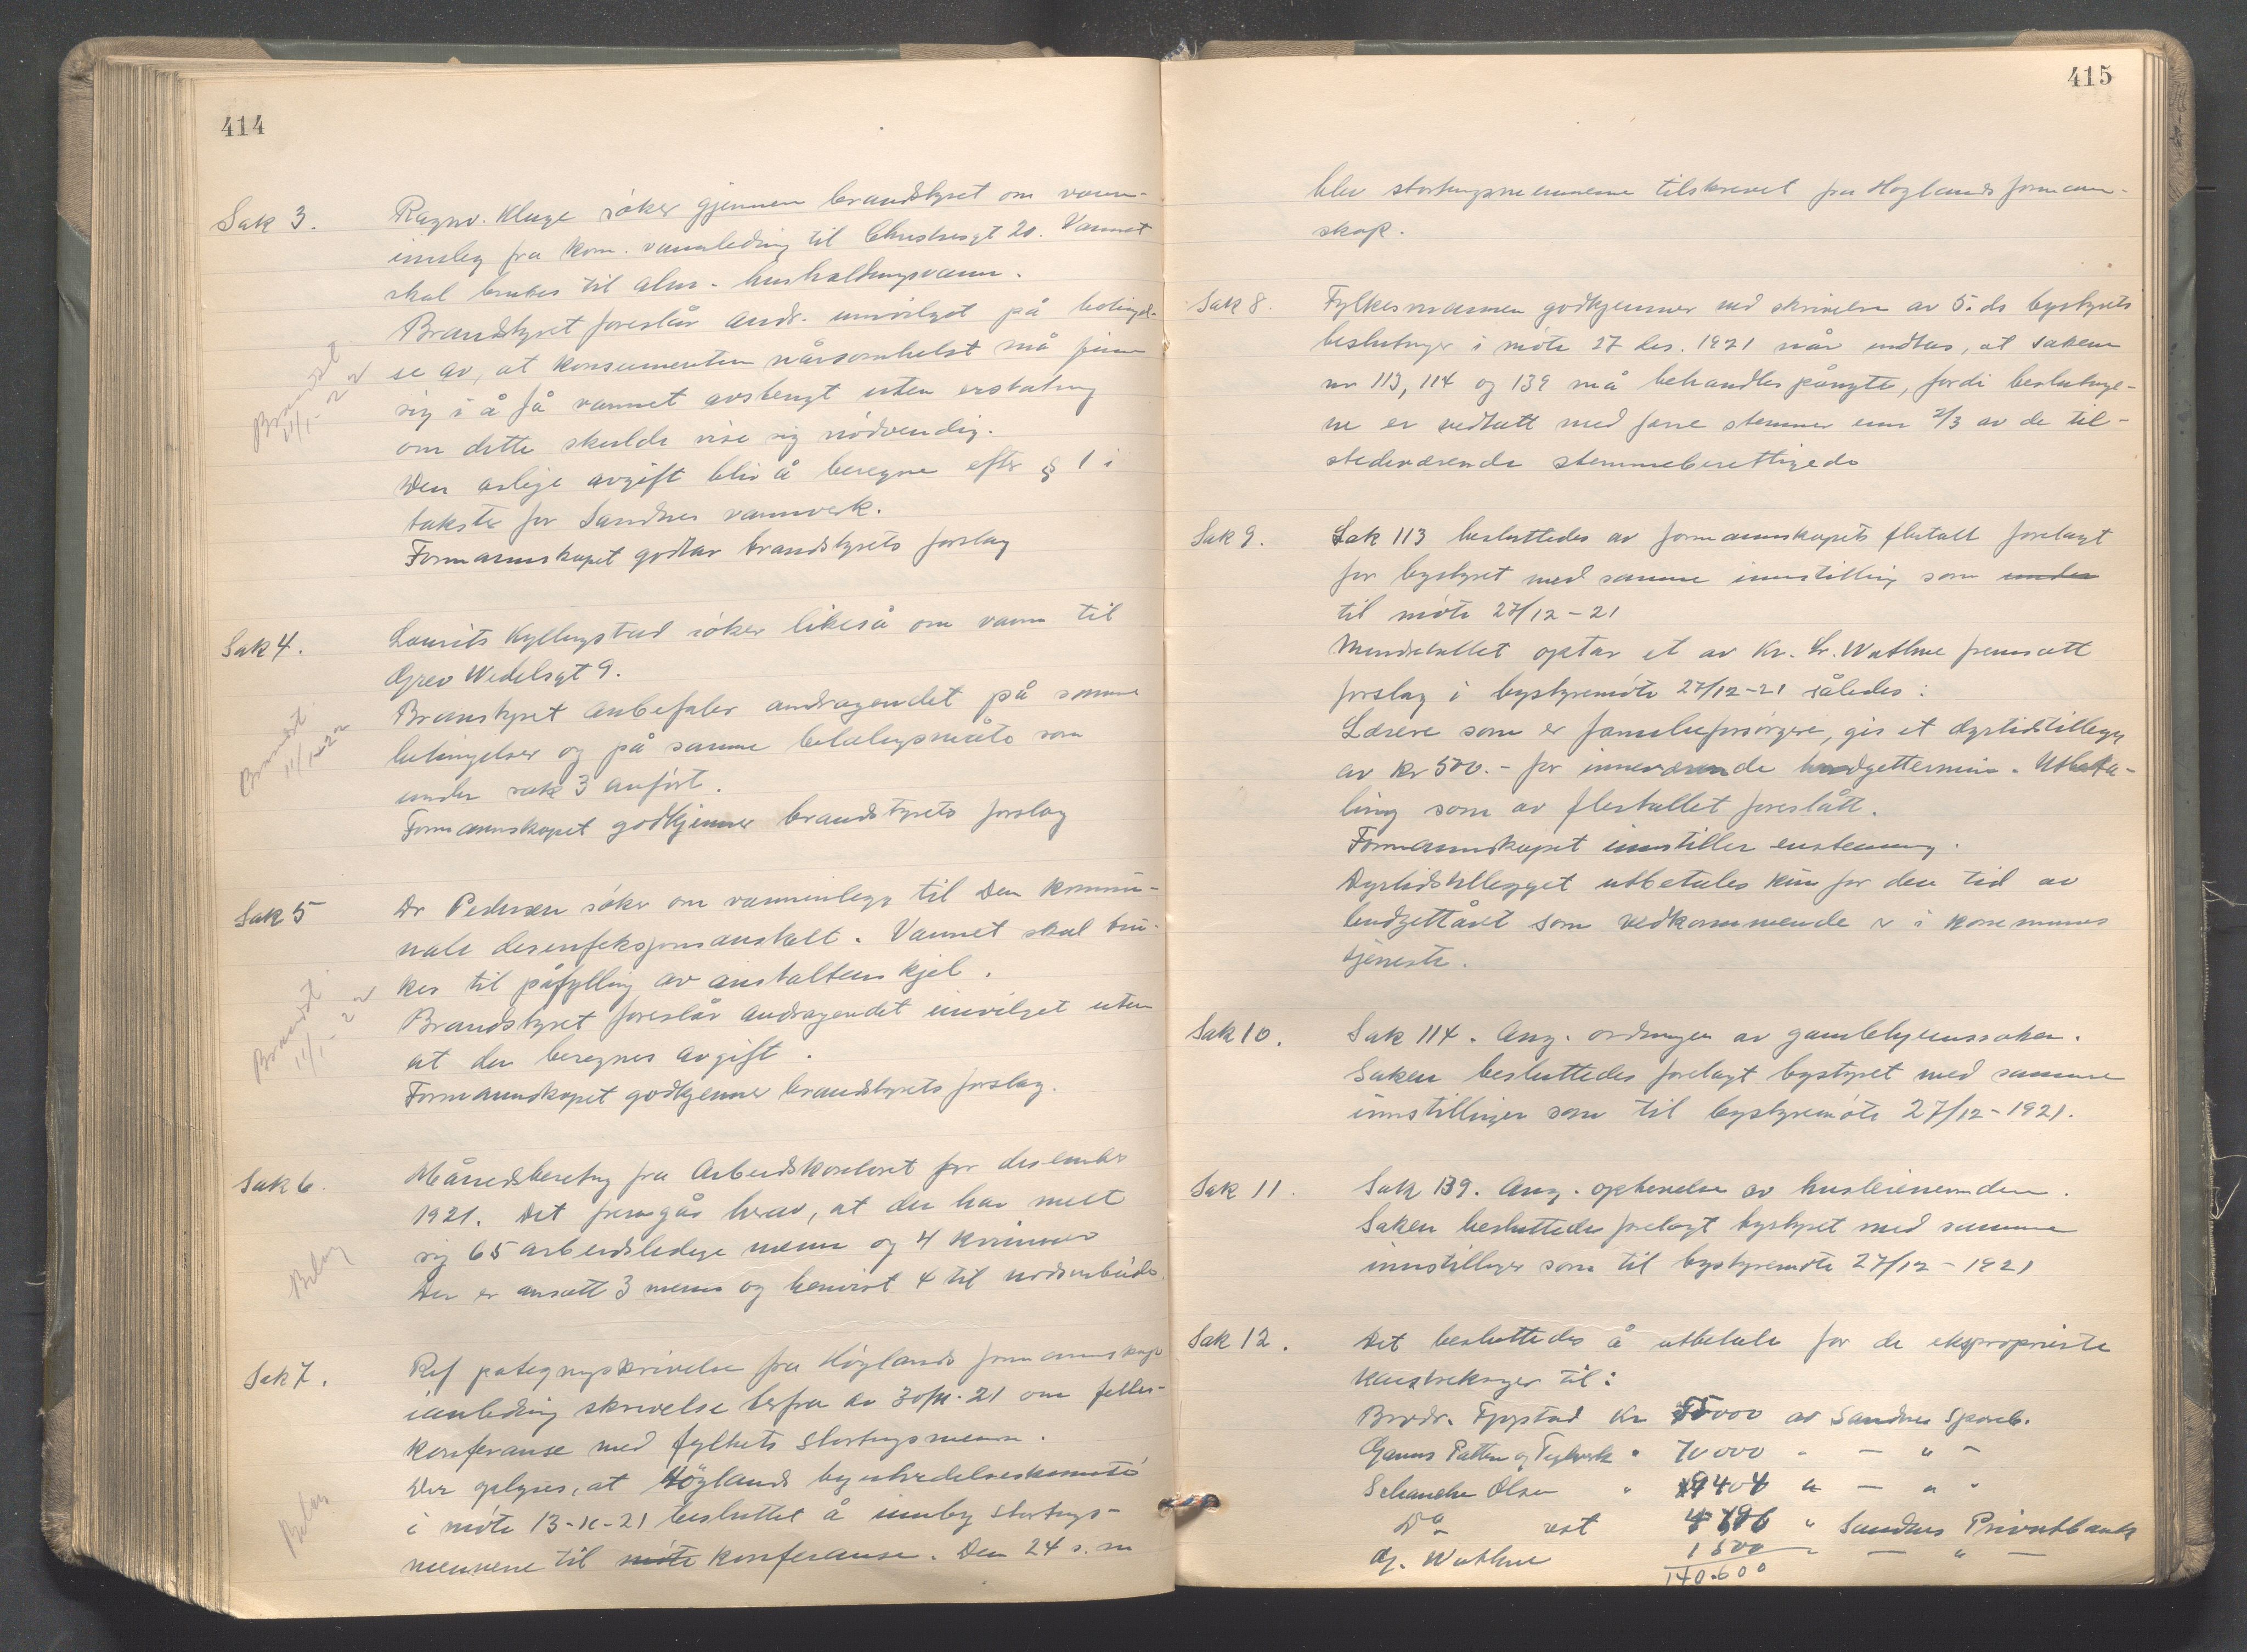 414
Sak 3. Ragnv. Kluge søker gjennem brandstyret om vann-
innleg fra kom. vannleding til Christiesgt 20. Vannet
skal brukes til alm. husholdningsvann.
Brandstyret foreslår andr. innvilget på betingel-
se av, at konsumenten nårsomhelst må finne
sig i å få vannet avstengt uten erstatning
om dette skulde vise sig nödvendig.
Den årlige avgift blir å beregne efter § 1 i
takster for Sandnes vannverk.
Formannskapet godtar brandstyrets forslag
Brandst.
11/1-22
Sak 4. Laurits Kyllingstad søker likeså om vann til
Grev Wedelsgt 9.
Branstyret anbefaler andragendet på samme
betingelser og på samme betalingsmåte som
under sak 3 anført.
Formannskapet godkjenner brandstyrets forslag
Brandst.
11/1-22
Sak 5 Dr Pedersen søker om vanninlegg til den kommu-
nale desinfeksjonsanstalt. Vannet skal bru-
kes til påfylling av anstaltens kjel.
Brandstyret foreslår andragendet innvilget uten
at der beregnes avgift.
Formannskapet godkjenner brandstyrets forslag.
Brandst.
11/1-22
Sak 6. Månedsberetng fra Arbeidskontoret for desember
1921. Det fremgår herav, at der har melt
sig 65 arbeidsledige menn og 4 kvinner
Der er ansatt 3 menn og henvist 4 til nødsarbeide.
Bilag
Sak 7. Ref påtegningsskrivelse fra Høylands formannskap
i anledning skrivelse herfra av 30/11-21 om felles-
konferanse med fylkets stortingsmenn.
Der oplyses, at Høylands byutvidelseskomité
i møte 13-10-21 besluttet å innby stortings-
mennene til møte konferanse. Den 24 s.m
Bilag
415
blev stortingsmennene tilskrevet fra Høylands formann-
skap.
Sak 8. Fylkesmannen godkjenner ved skrivelse av 5. ds bystyrets
beslutninger i møte 27 des. 1921 når undtas, at sakene
nr 113, 114 og 139 må behandles pånytt, fordi beslutninge-
ne er vedtatt med færre stemmer enn 2/3 av de til-
stedeværende stemmeberettigede
Sak 9. Sak 113 besluttedes av formannskapets flertall forelagt
for bystyret med samme innstilling som under
til møte 27/12-21
Mindretallet optar et av Kr. Lr. Wathne fremsatt
forslag i bystyremøte 27/12-21 således:
Lærere som er familieforsørgere, gis et dyrtidstillegg
av kr 500.- for inneværende budgettermin. Utbeta-
ling som av flertallet foreslått.
Formannskapet innstiller enstemmig.
Dyrtidstillegget utbetales kun for den tid av
budgettåret som vedkommende er i kommunens
tjeneste.
Sak 10. Sak 114. Ang. ordningen av gamlehjemssaken.
Saken besluttedes forelagt bystyret med samme
innstillinger som til bystyremøte 27/12-1921.
Sak 11. Sak 139. Ang. ophevelse av husleienemnden.
Saken besluttedes forelagt bystyret med samme
innstillinger som til bystyremøte 27/12-1921
Sak 12. Det besluttedes å utbetale for de eksproprierte
til:
Brødr. Kr 55000 av Sandnes Spareb.
Ganns Potteri og Teglverk " 70000 " — " —
Schanche Olsen " 9404 " — " "
Do rest 4796 " Sandnes Privatbank
Wathne 1500 — " —
140.600